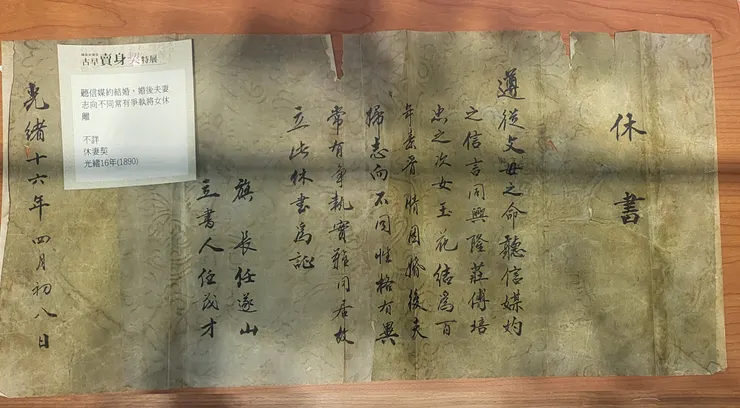 休書
遵從父母之命聽信媒妁
之信言同興隆莊傅培
忠之次女玉花結爲百
年秦晉情因婚後夫
婦志向不同性格有異
常有爭執實難同居故
立此休書爲証
旗長任遂山
立書人任茂才
光緒十六年四月初八日
古早賣身契特展
聽信媒約結婚，婚後夫妻
志向不同常有爭執將女休
離
不詳
休妻契
光緒16年(1890)